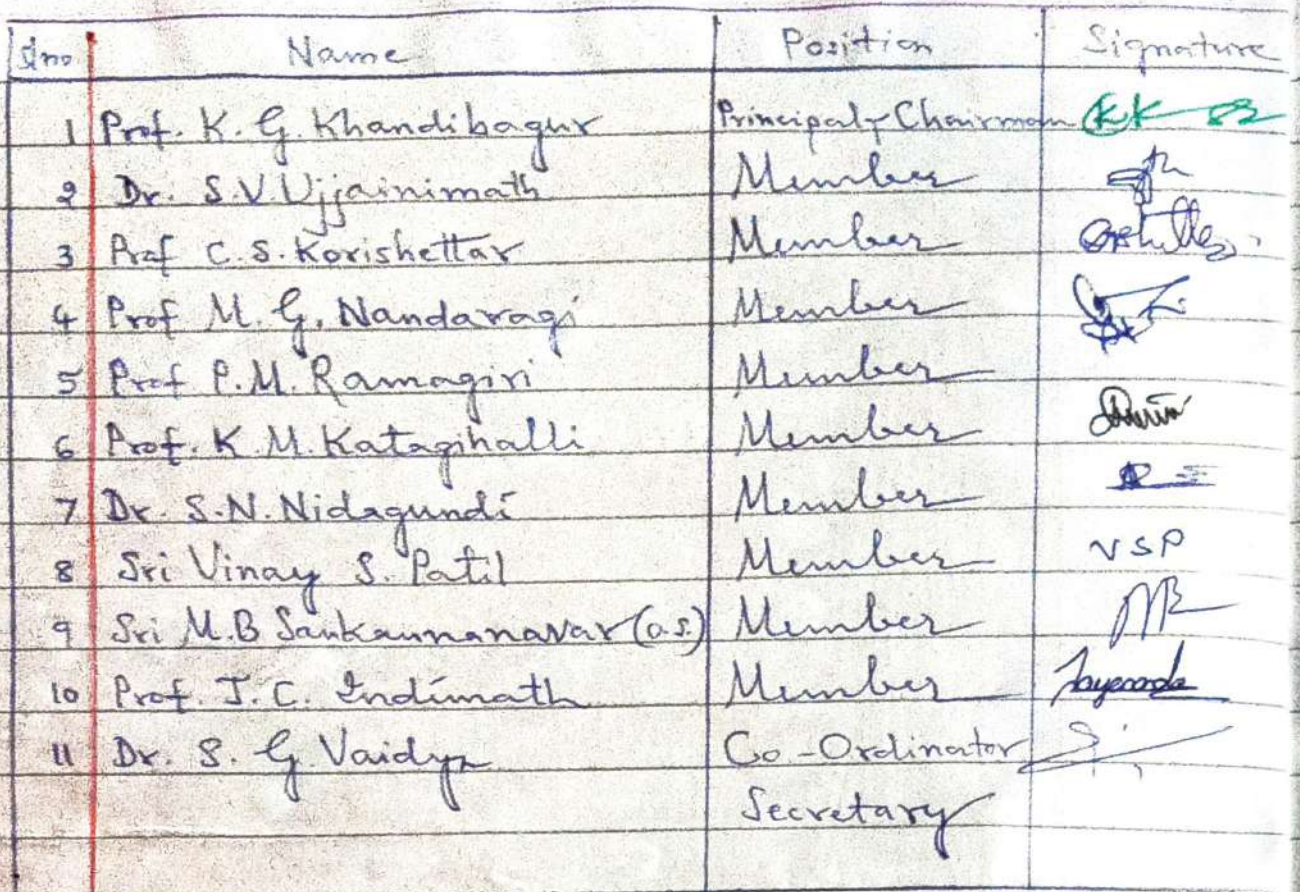 Slno Name Position Signature
1 Prof. K. G. Khandibagur Principal & Chairman
2 Dr. S.V. Ujjainimath Member
3 Prof C. S. Korishettar Member
4 Prof M. G. Nandaragi Member
5 Prof P.M. Ramagiri Member
6 Prof. K. M. Katagihalli Member
7 Dr. S.N. Nidagundi Member
8 Sri Vinay S. Patil Member VSP
9 Sri M.B Sankannanavar (o.s.) Member
10 Prof. J. C. Indimath Member
11 Dr. S. G. Vaidya Co-Ordinator
Secretary